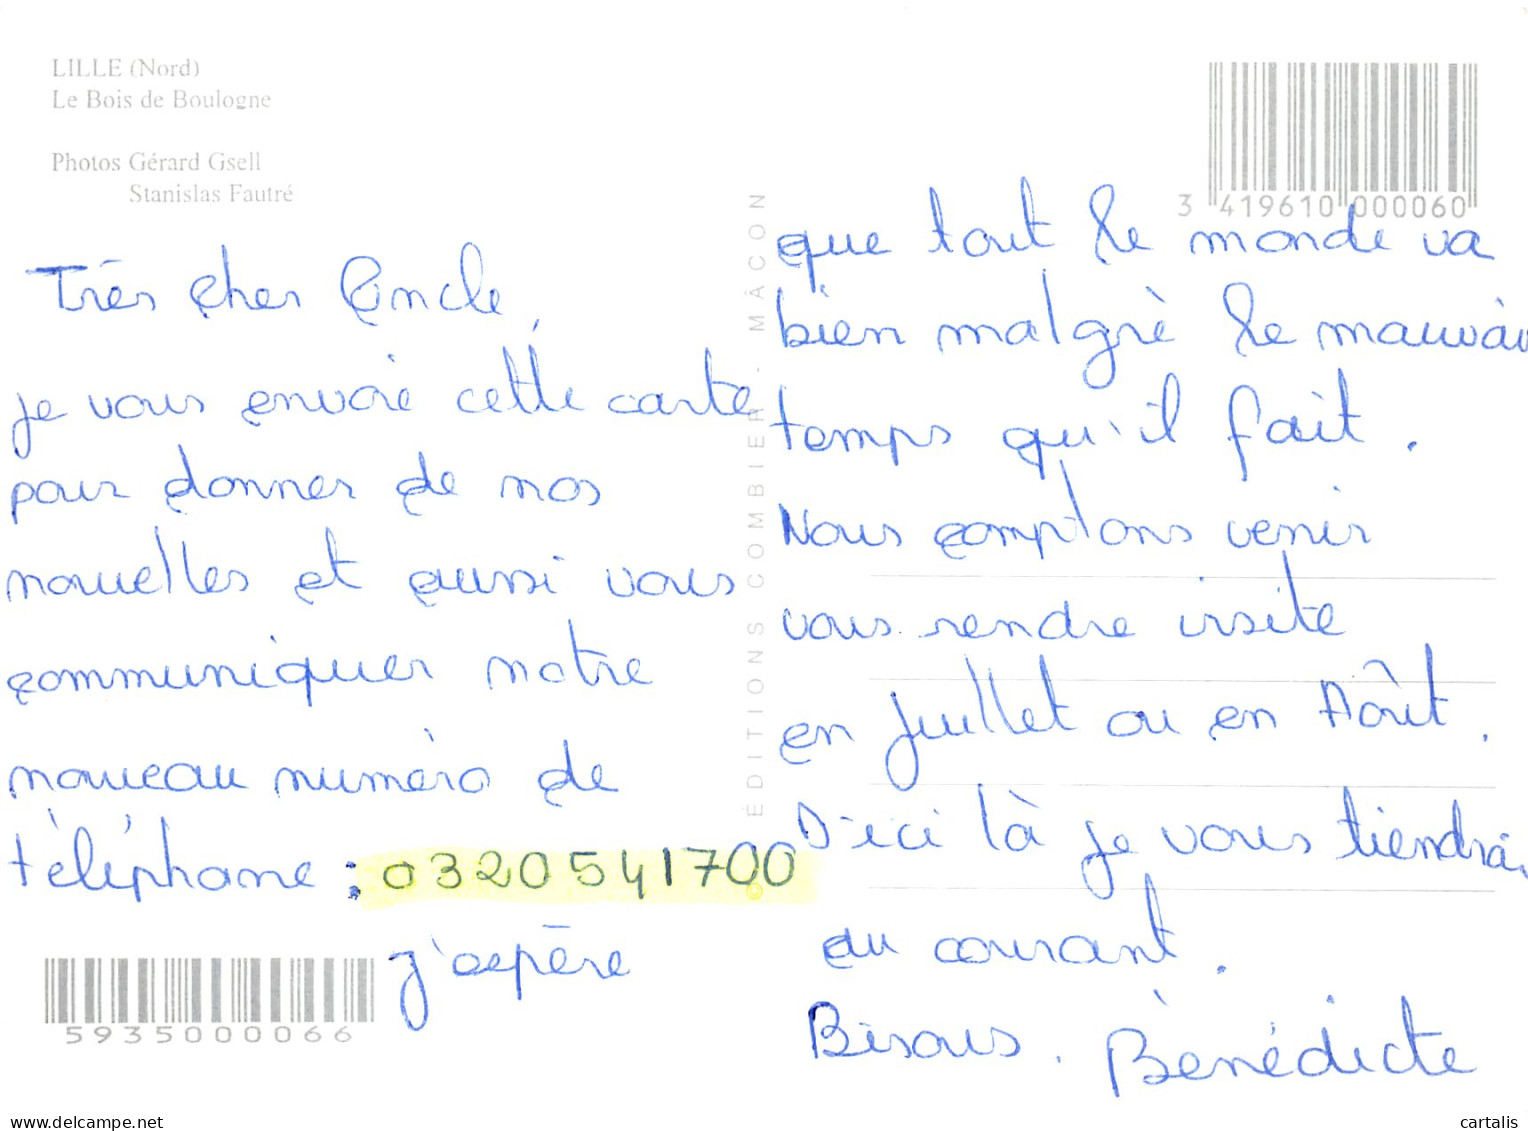 LILLE (Nord)
Le Bois de Boulogne
Photos Gérard Gsell
Stanislas Fautré
Très cher Oncle,
je vous envoie cette carte
pour donner de nos
nouvelles et aussi vous
communiquer notre
nouveau numéro de
téléphone : 0320541700
j'espère
5935000066
ÉDITIONS COMBIER - MÂCON
3 419610 000060
que tout le monde va
bien malgrè le mauvais
temps qu'il fait.
Nous comptons venir
vous rendre visite
en Juillet ou en Août.
D'ici là je vous tiendrai
au courant.
Bisous. Bénédicte
delcampe.net
cartalis